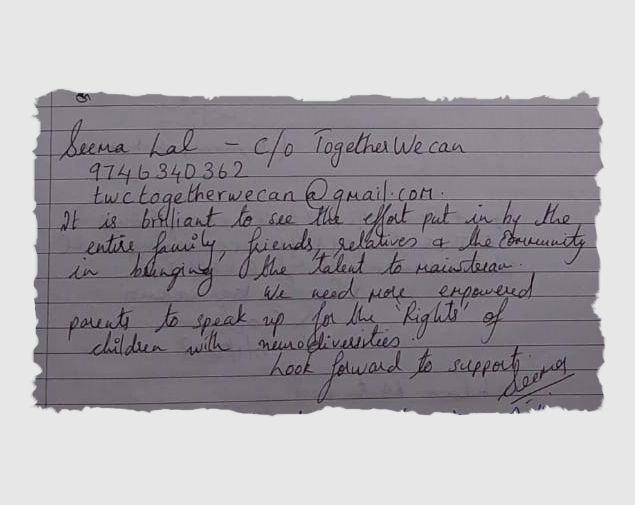 Seema Lal - C/o TogetherWecan
9746340362
twctogetherwecan@gmail.com.
It is brilliant to see the effort put in by the
entire family, friends, relatives & the Community
in bringing the talent to mainstream.
We need more empowered
parents to speak up for the 'Rights' of
children with neurodiversities.
Look forward to support.
Seema